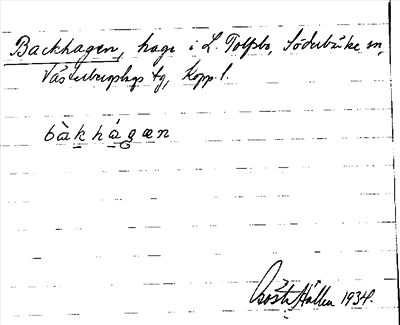 Backhagen, hage i L. Tolfsbo, Söderbärke sn,
Västerbergslags tg, Kopp. l.
bàkhágæn
Gösta Hallen 1934.